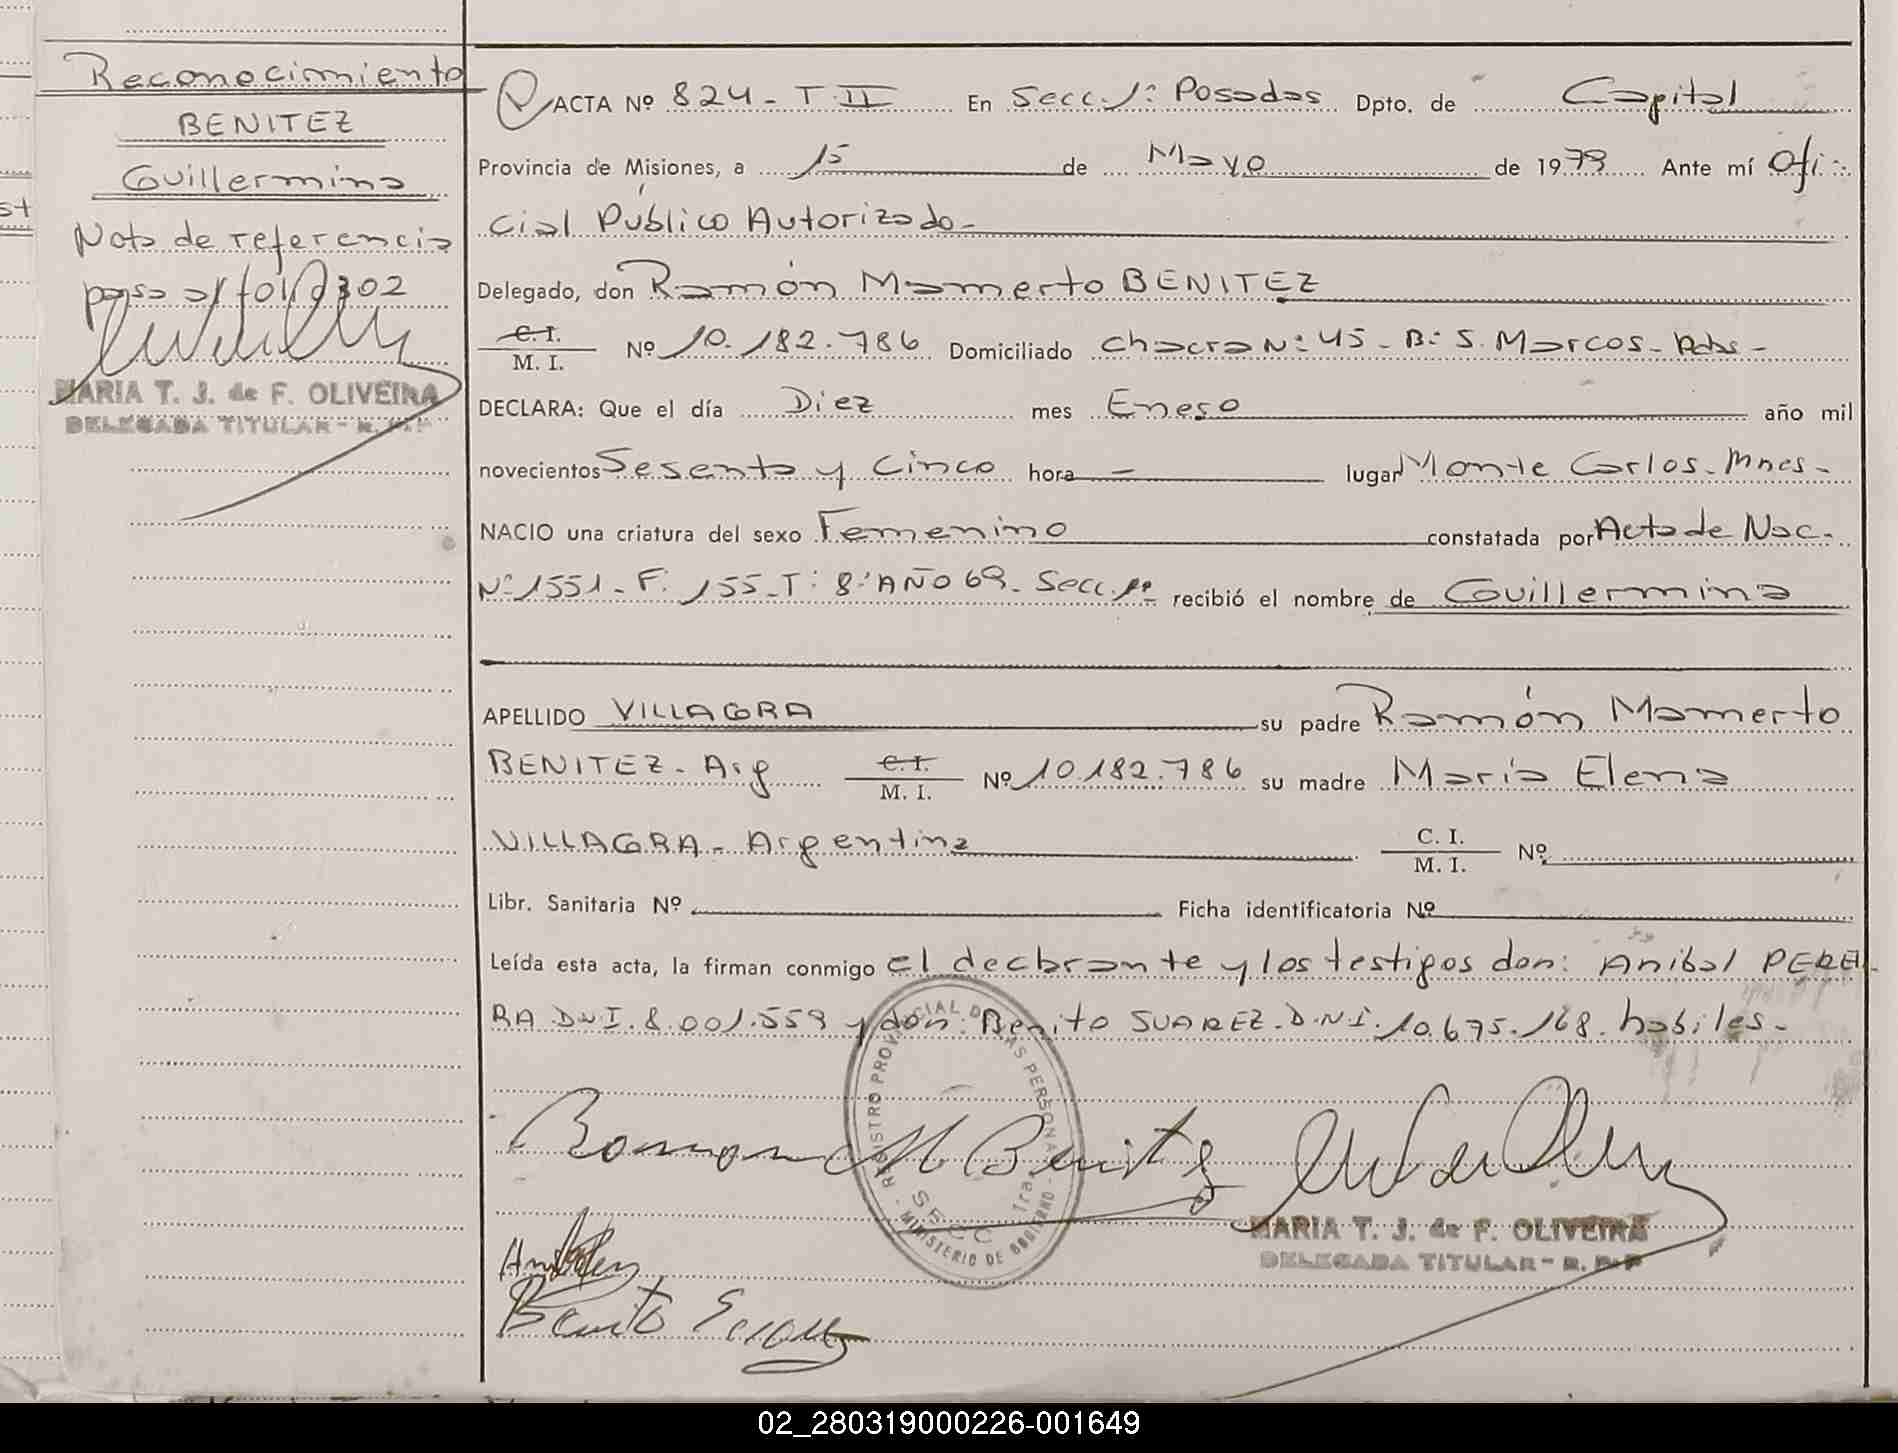 Reconocimiento
BENITEZ
Guillermina
Nota de referencia
pasa al folio 302
MARIA T. J. de F. OLIVEIRA
DELEGADA TITULAR - R. P. P
ACTA Nº 824 - T II En Secc. 1ª Posadas Dpto. de Capital
Provincia de Misiones, a 15 de Mayo de 1979 Ante mí Ofi-
cial Público Autorizado-
Delegado, don Ramón Mamerto BENITEZ
C. I.
M. I. Nº 10.182.786 Domiciliado Chacra Nº 45 - Bº S. Marcos - Pdas -
DECLARA: Que el día Diez mes Enero año mil
novecientos Sesenta y Cinco hora — lugar Monte Carlos - Mnes -
NACIO una criatura del sexo Femenino constatada por Acta de Nac.
Nº 1551 - F: 155 - T: 8º AÑO 69 - Secc. 1ª recibió el nombre de Guillermina
APELLIDO VILLAGRA su padre Ramón Mamerto
BENITEZ - Arg C. I. M. I. Nº 10.182.786 su madre María Elena
VILLAGRA - Argentina C. I. M. I. Nº
Libr. Sanitaria Nº Ficha identificatoria Nº
Leída esta acta, la firman conmigo el declarante y los testigos don: Anibal PERE
RA DNI. 8.001.559 y don: Benito SUAREZ. D.N.I. 10.675.168. habiles -
Ramon M Benitez
REGISTRO PROVINCIAL DE LAS PERSONAS - MINISTERIO DE GOBIERNO -
SECC. 1ra
MARIA T. J. de F. OLIVEIRA
DELEGADA TITULAR - R. P. P
Benito Suarez
02_280319000226-001649